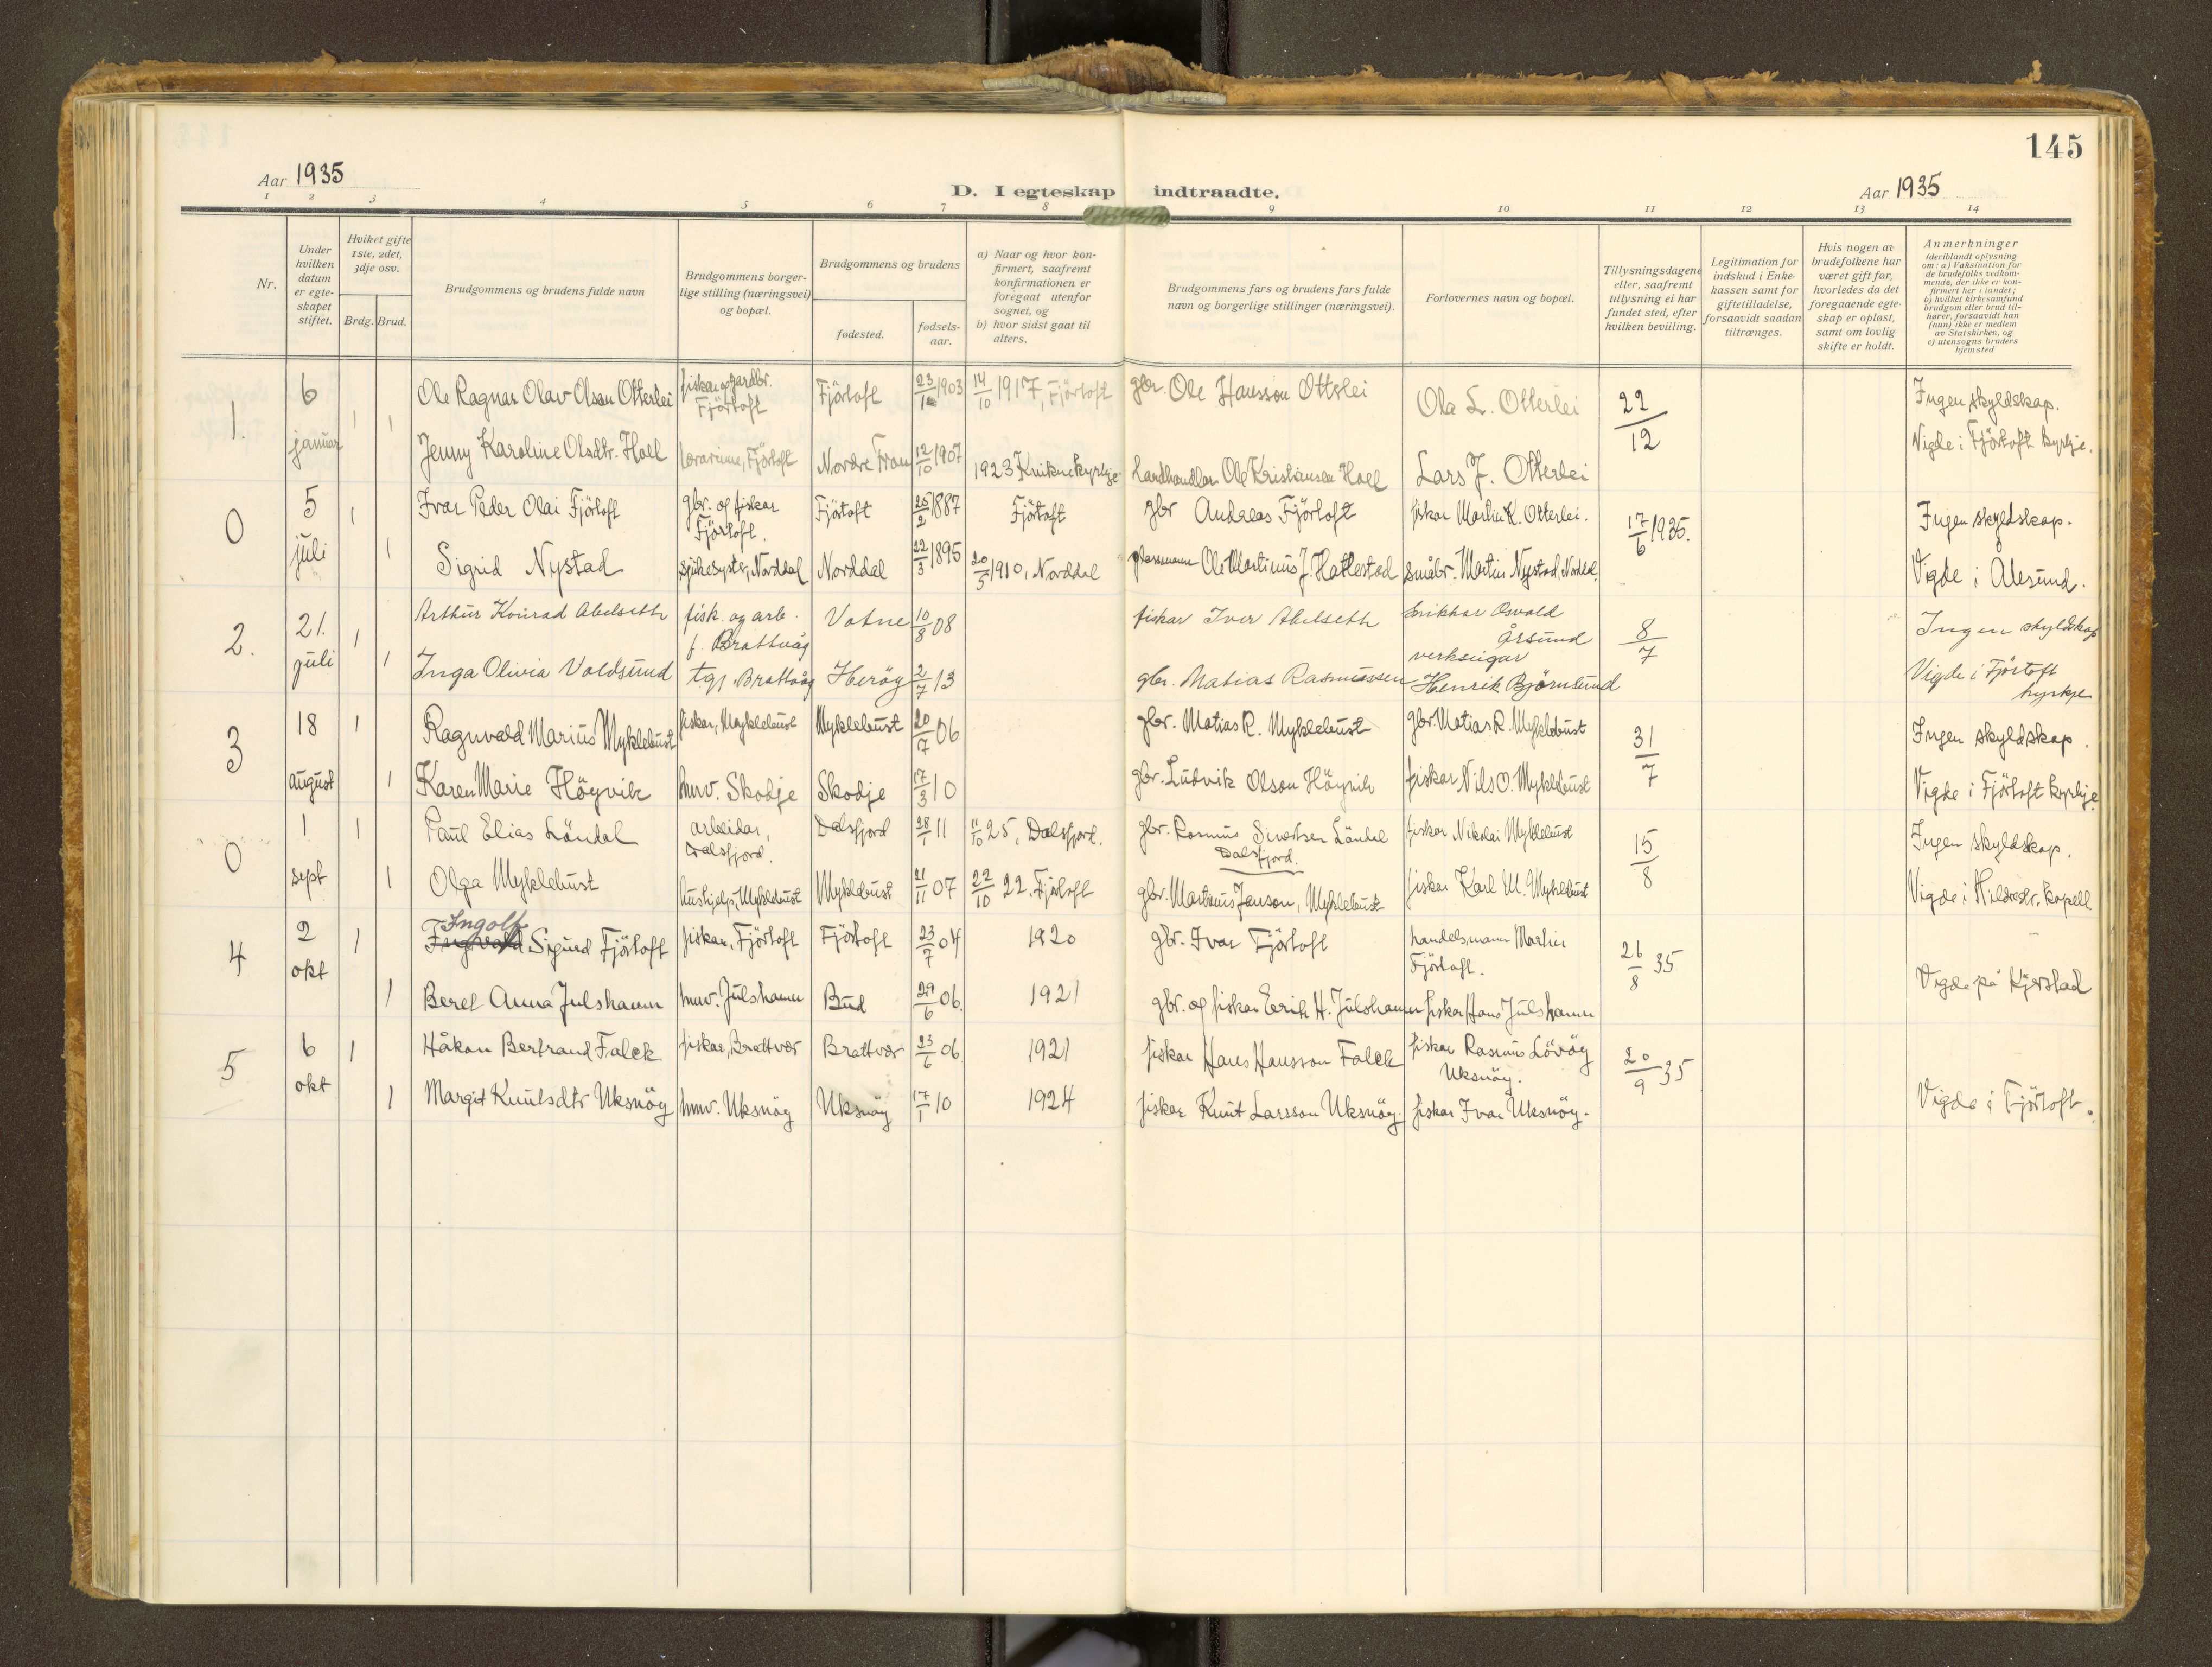 145
Aar 1935
D. I egteskap indtraadte.
Aar 1935
1 2 3 4 5 6 7 8 9 10 11 12 13 14
Nr.
Under hvilken datum er egteskapet stiftet.
Hviket gifte 1ste, 2det, 3dje osv.
Brdg. Brud.
Brudgommens og brudens fulde navn
Brudgommens borgerlige stilling (næringsvei) og bopæl.
Brudgommens og brudens
fødested.
fødselsaar.
a) Naar og hvor konfirmert, saafremt konfirmationen er foregaat utenfor sognet, og
b) hvor sidst gaat til alters.
Brudgommens fars og brudens fars fulde navn og borgerlige stillinger (næringsvei).
Forlovernes navn og bopæl.
Tillysningsdagene eller, saafremt tillysning ei har fundet sted, efter hvilken bevilling.
Legitimation for indskud i Enkekassen samt for giftetilladelse, forsaavidt saadan tiltrænges.
Hvis nogen av brudefolkene har været gift før, hvorledes da det foregaaende egteskap er opløst, samt om lovlig skifte er holdt.
Anmerkninger (deriblandt oplysning om: a) Vaksination for de brudefolks vedkommende, der ikke er konfirmert her i landet; b) hvilket kirkesamfund brudgom eller brud tilhører, forsaavidt han (hun) ikke er medlem av Statskirken, og c) utensogns bruders hjemsted
1. 6 januar 1 1
Ole Ragnar Olav Olsen Otterlei fiskar og gardbr. Fjörtoft Fjörtoft 23/10 1903 14/10 1917, Fjörtoft gbr. Ole Hansson Otterlei Ola L. Otterlei 22/12 Ingen skyldskap.
Jenny Karoline Olsdtr. Holl lærarinne, Fjörtoft Nordre Fron 12/10 1907 1923 Kvikne kyrkje landhandlar Ole Kristiansen Holl Lars J. Otterlei Vigde i Fjörtoft kyrkje.
0 5 juli 1 1
Ivar Peder Olai Fjörtoft gbr. og fiskar Fjörtoft. Fjörtoft 25/2 1887 Fjörtoft gbr Andreas Fjörtoft fiskar Martin K. Otterlei. 17/6 1935. Ingen skyldskap.
Sigrid Nystad sjukesyster, Norddal Norddal 22/3 1895 20/5 1910, Norddal Ole Martinus J. Hatlestad småbr. Martin Nystad, Vigde i Ålesund.
2. 21. juli 1 1
Arthur Konrad Abelseth fisk. og arb. f. Brattvåg Vatne 10/8 08 fiskar Iver Abelseth Osvald Årsund 8/7 Ingen skyldskap
Inga Olivia Voldsund tgj. Brattvåg Heröy 2/7 13 gbr. Matias Rasmussen verkseigar Henrik Björnsund Vigde i Fjörtoft kyrkje
3 18 august 1 1
Ragnvald Marius Myklebust fiskar, Myklebust Myklebust 20/7 06 gbr. Matias R. Myklebust gbr Matias R. Myklebust 31/7 Ingen skyldskap.
Karen Marie Höyvik hmv. Skodje Skodje 17/3 10 gbr. Ludvik Olson Höyvik fiskar Nils O. Myklebust Vigde i Fjörtoft kyrkje
0 1 sept 1 1
Paul Elias Löndal arbeidar, Dalsfjord. Dalsfjord 28/1 11 11/10 25, Dalsfjord. gbr. Rasmus Sivertsen Löndal Dalsfjord. fiskar Nikolai Myklebust 15/8 Ingen skyldskap.
Olga Myklebust hushjelp, Myklebust Myklebust 21/11 07 22/10 22, Fjörtoft gbr. Martinus Janson, Myklebust fiskar Karl M. Myklebust Vigde i Hildrestr. kapell
4 2 okt 1 1
Ingolf
Ingvald Sigurd Fjörtoft fiskar, Fjörtoft Fjörtoft 23/7 04 1920 gbr. Ivar Fjörtoft handelsmann Martin Fjörtoft. 26/8 35
Beret Anna Julshamn hmv. Julshamn Bud 29/6 06. 1921 gbr. og fiskar Eerik H. Julshamn fiskar Hans Julshamn Vigde på Kjerstad
5 6 okt 1 1
Håkon Bertrand Falck fiskar, Brattvær Brattvær 23/6 06. 1921 fiskar Hans Hansson Falck fiskar Rasmus Lövöy Uksnöy. 20/9 35
Margit Knutsdtr Uksnöy hmv. Uksnöy Uksnöy 17/1 10 1924 fiskar Knut Larsson Uksnöy. fiskar Ivar Uksnöy. Vigde i Fjörtoft.